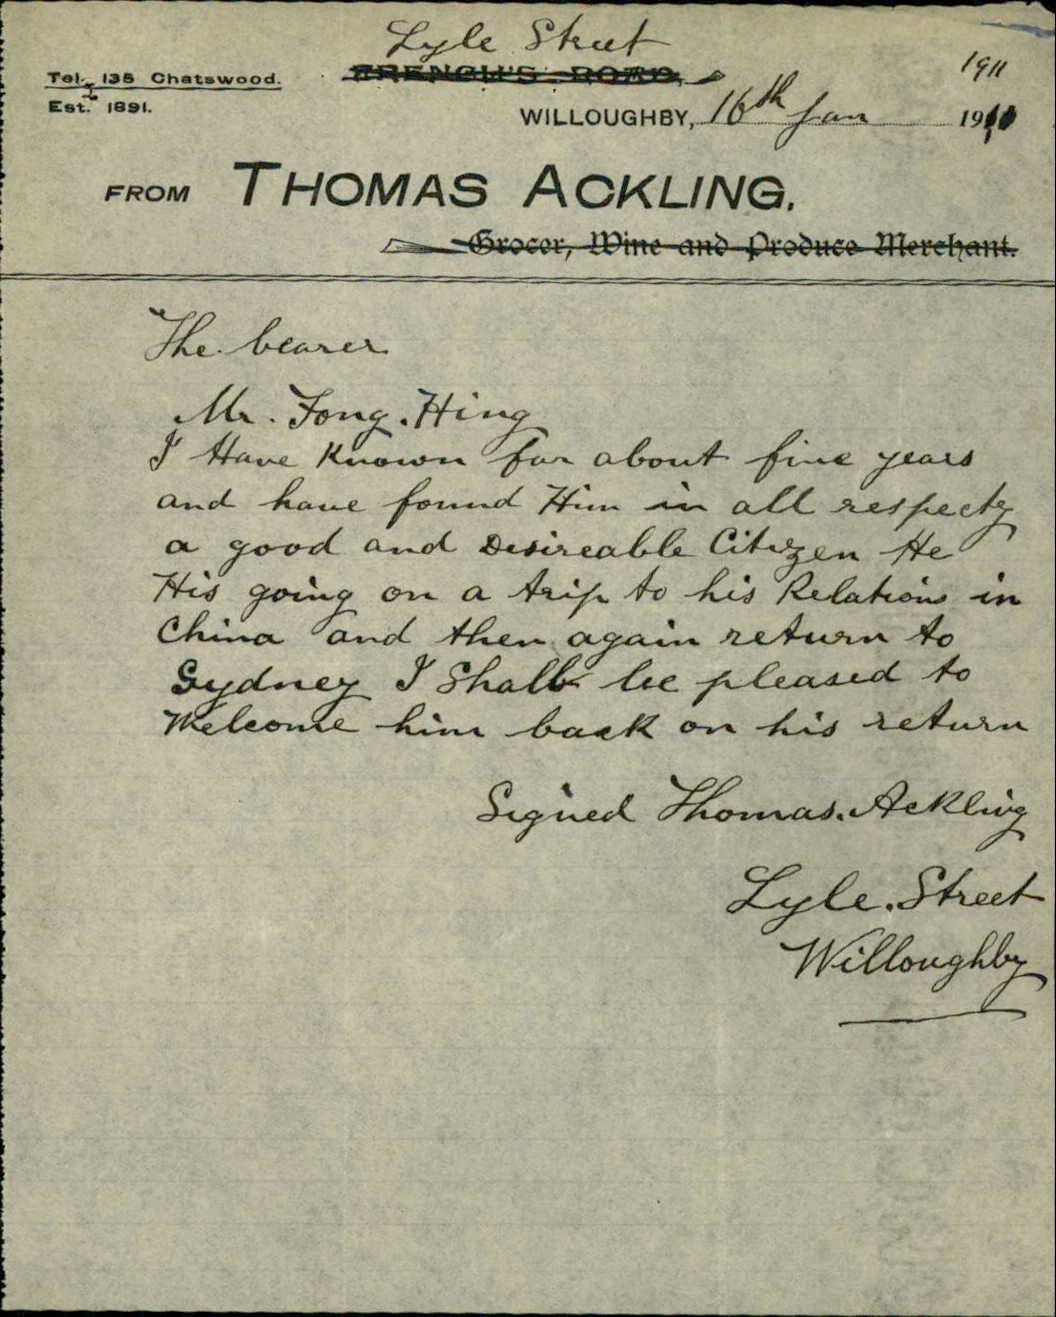 Lyle Street
FRENCH'S ROAD,
Tel. 135 Chatswood.
Est. 1891.
1911
WILLOUGHBY, 16th Jan 1911
FROM THOMAS ACKLING.
Grocer, Wine and Produce Merchant.
The bearer
Mr. Fong. Hing
I Have Known for about five years
and have found Him in all respects
a good and Desireable Citizen He
His going on a trip to his Relations in
China and then again return to
Sydney I Shall be pleased to
Welcome him back on his return
Signed Thomas. Ackling
Lyle. Street
Willoughby